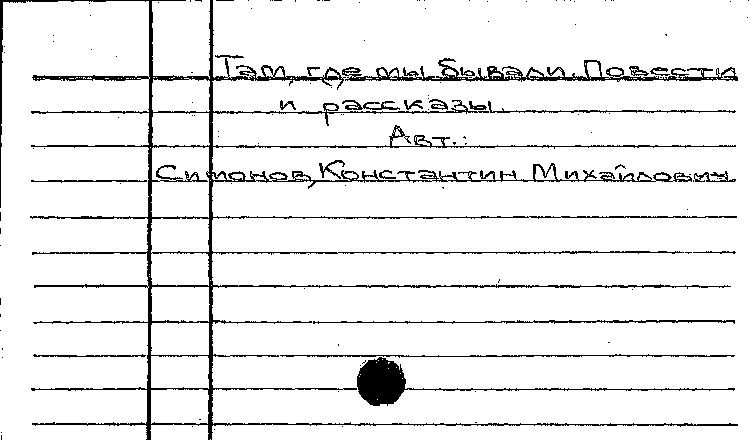 Там, где мы бывали. Повести
и рассказы.
Авт.:
Симонов, Константин Михайлович